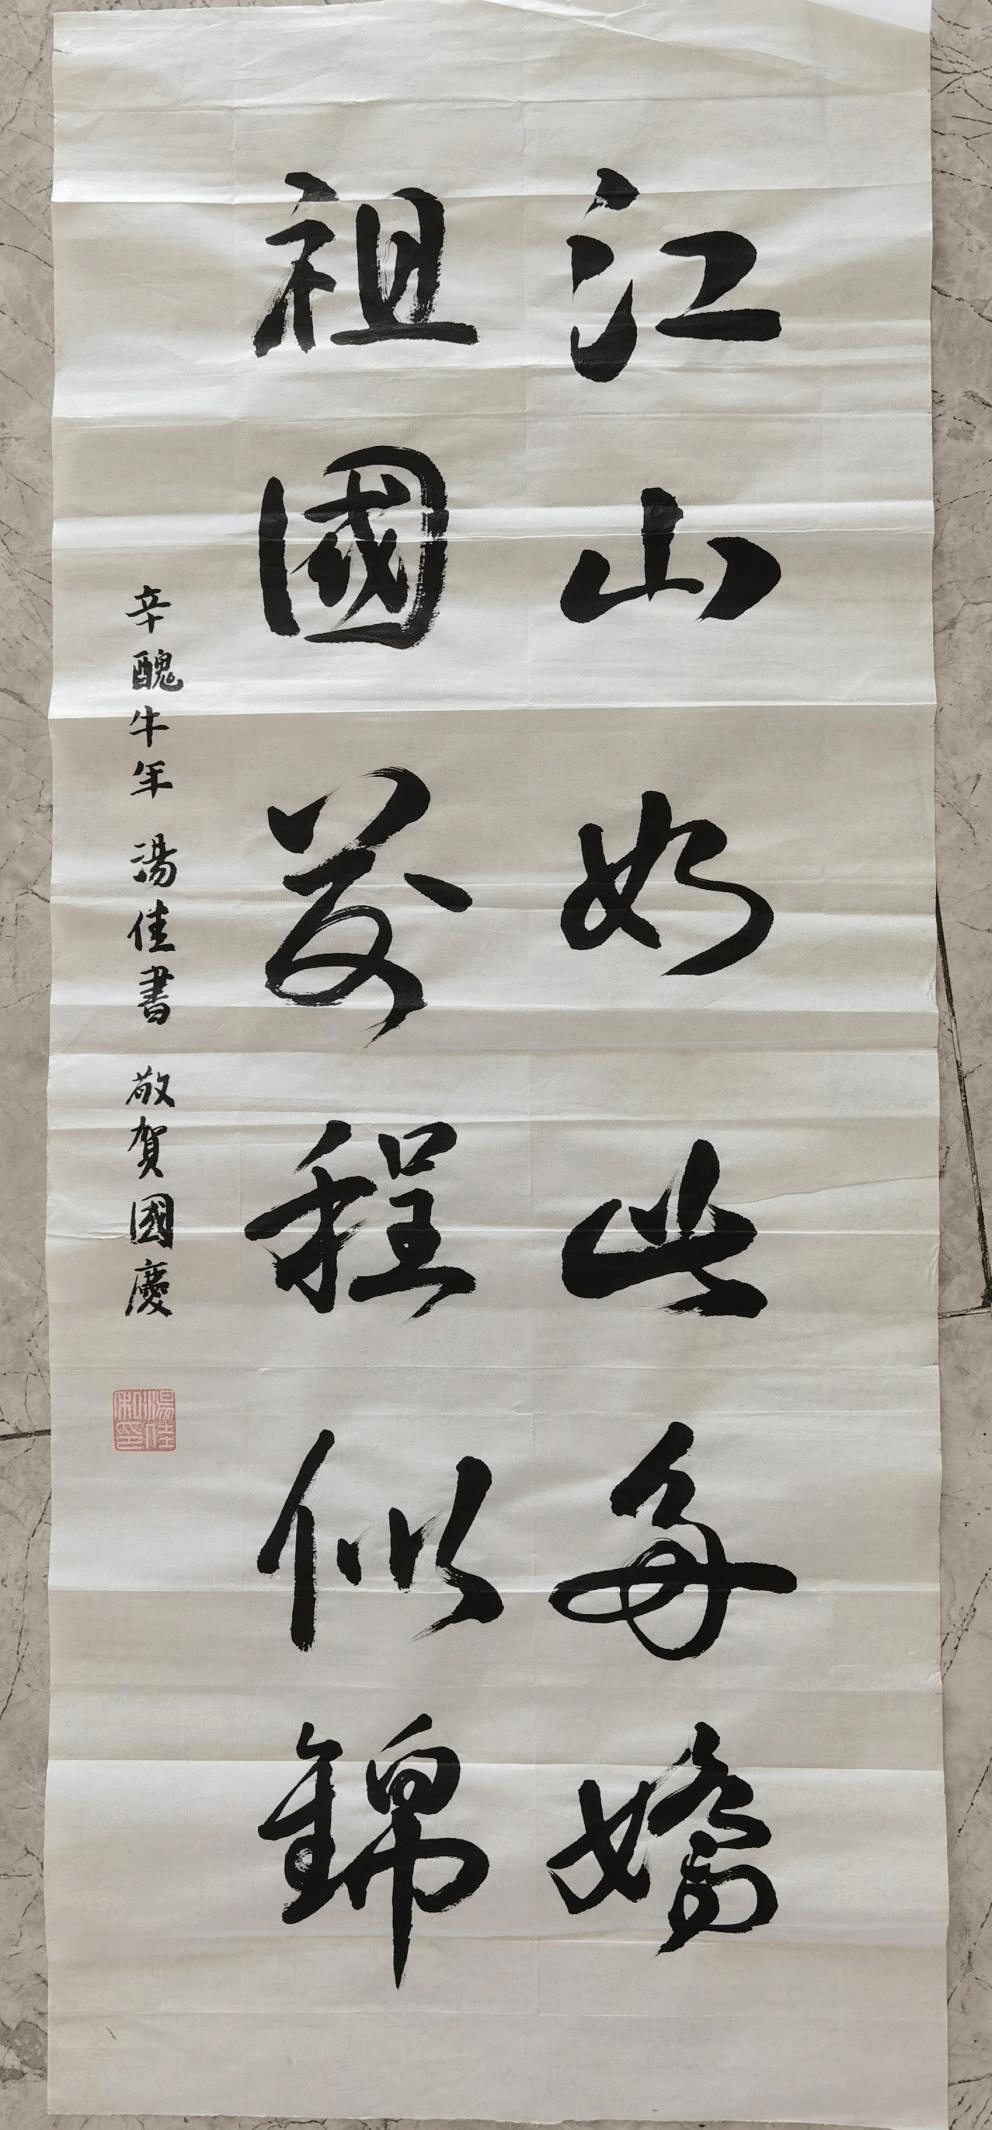 江山如此多嬌
祖國前程似錦
辛醜牛年 湯佳書 敬賀國慶